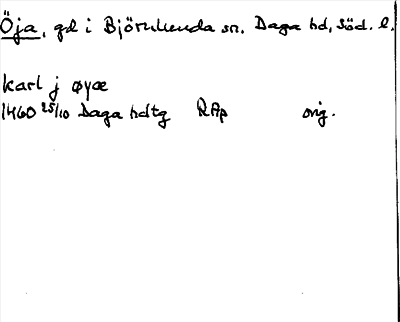 Öja, gd i Björnlunda sn, Daga hd, Söd. l.
karl j øyæ
1460 25/10 Daga hdtg RAp orig.